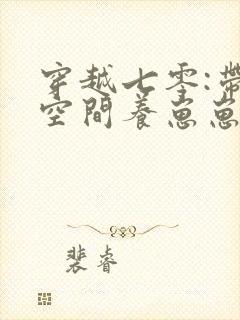 穿越七零:帶
空間養崽崽
裴睿